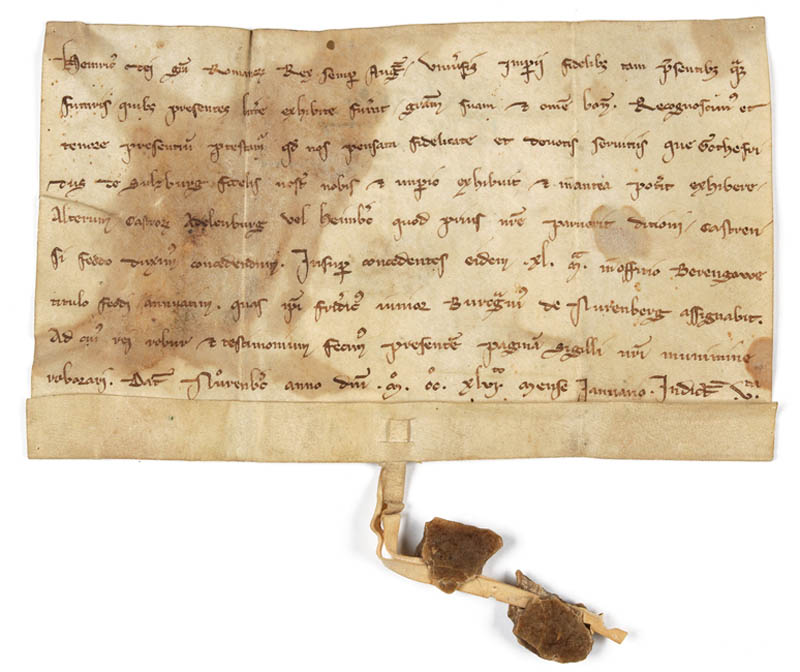 Heinric Dei gra Romanor Rex semper Aug. Univsis Imperii fidelibz tam psentibz qz
futuris quibz presentes lre exhibite fuerint gram suam et ome bon. Recognoscim et
tenore presentium protestam qd nos pensata fidelitate et devotis serviciis que Gothefri
dus de Sulzburg fidelis nostr nobis et imperio exhibuit et inantea poterit exhibere.
Alterum castror Adelenburg vel Heinbc quod prius nre paruerit ditioni. castren
si feodo duxim concedendum. Insup concedentes eidem .xl. m. in officio Berengowe
titulo feodi annuatim. quas ipi fridic iunior Burcgvi de Nurenberg assignabit.
Ad cui rei robur et testimonium fecim presente pagina sigilli nri munimine
roborari. Dat Nurenbc anno dni .m. cc. xlvi. mense Januario. Indict v.